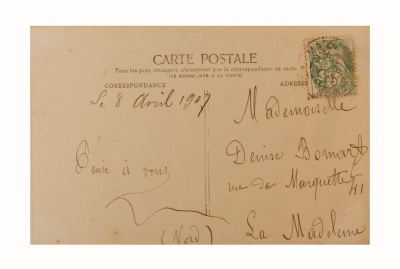 CARTE POSTALE
Tous les pays étrangers n'acceptent pas la correspondance au recto
(SE RENSEIGNER A LA POSTE)
CORRESPONDANCE
ADRESSE
Le 8 Avril 1907
Pense à vous
Mademoiselle
Denise Bomart
rue de Marquette 41
La Madeleine
(Nord)